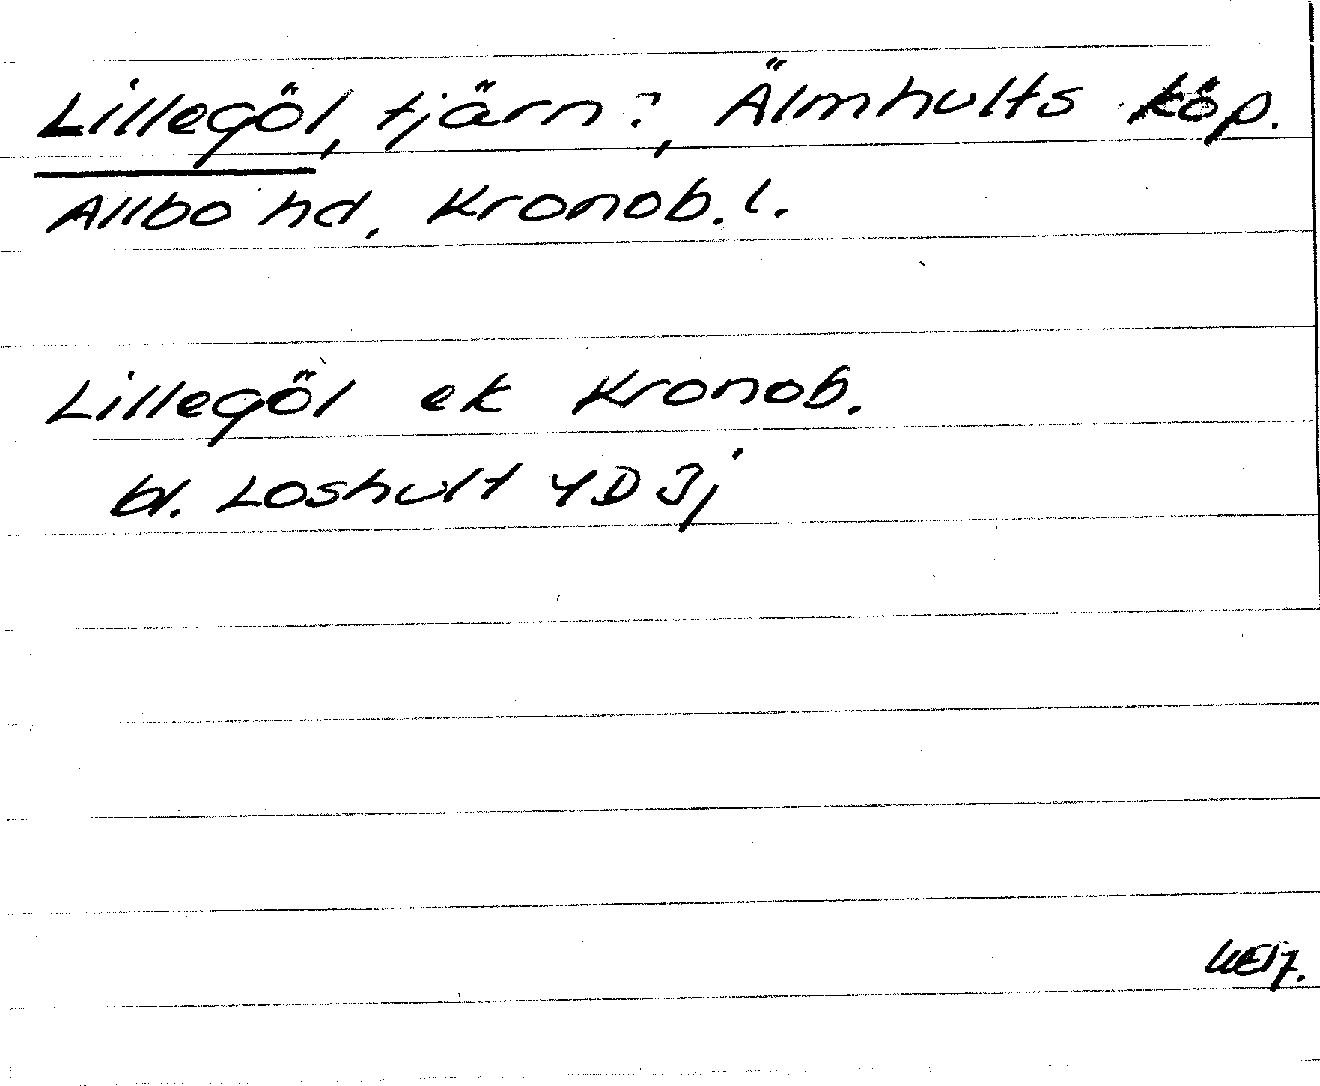 Lillegöl, tjärn?, Älmhults köp.
Allbo hd, Kronob. l.
Lillegöl ek Kronob.
bl. Loshult 4D3j